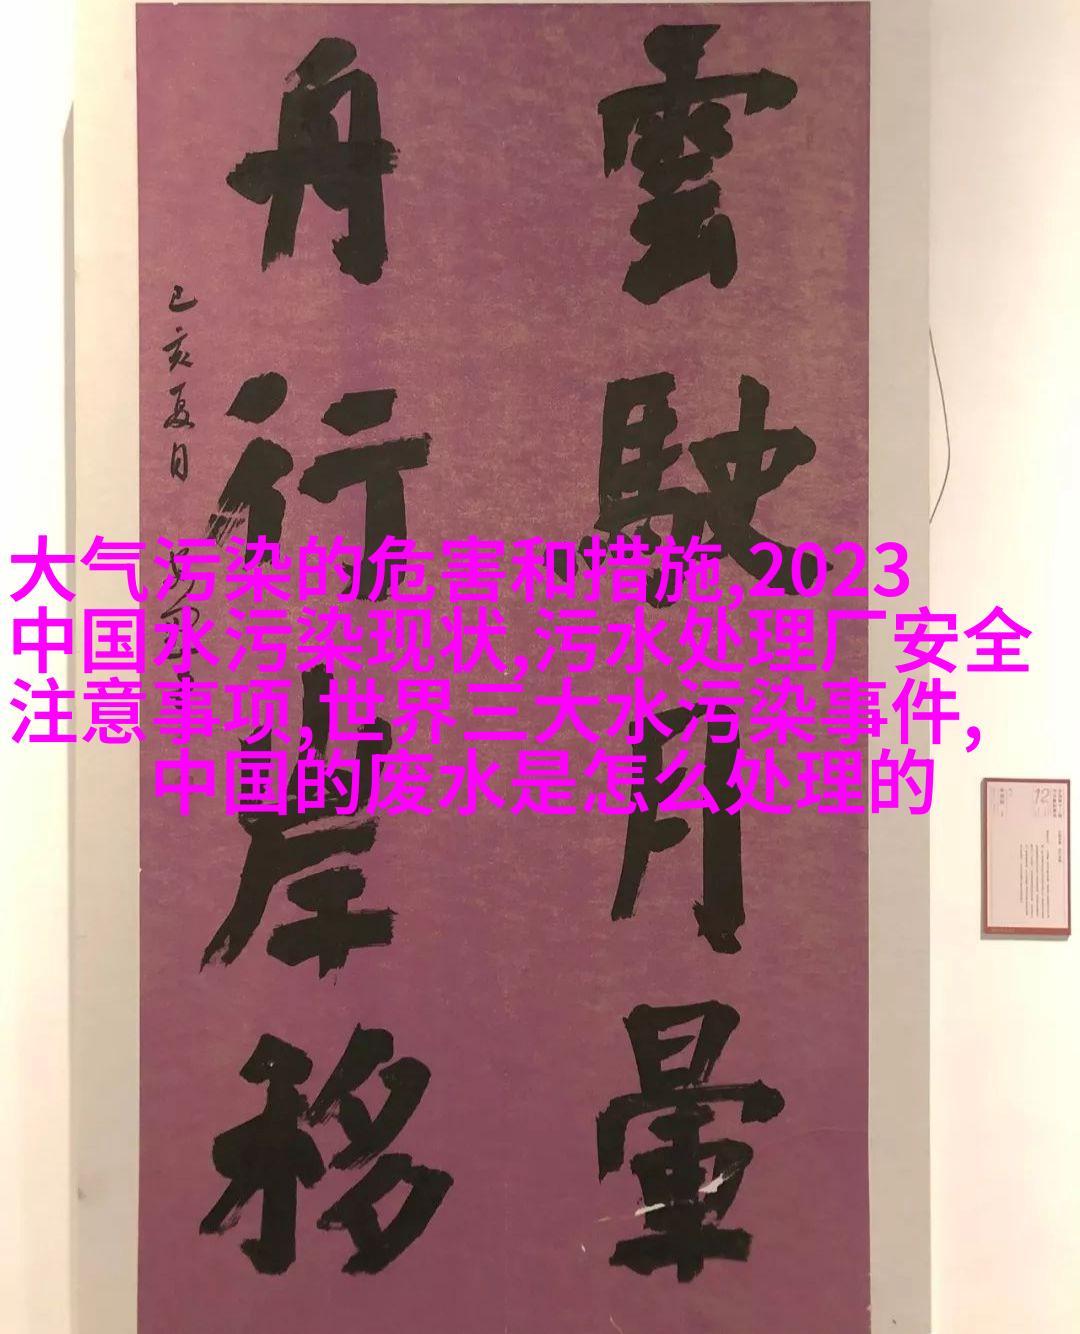 雲駛月暈
舟行岸移
己亥夏日
大气污染的危害和措施,2023
中国水污染现状,污水处理厂安全
注意事项,世界三大水污染事件,
中国的废水是怎么处理的
12